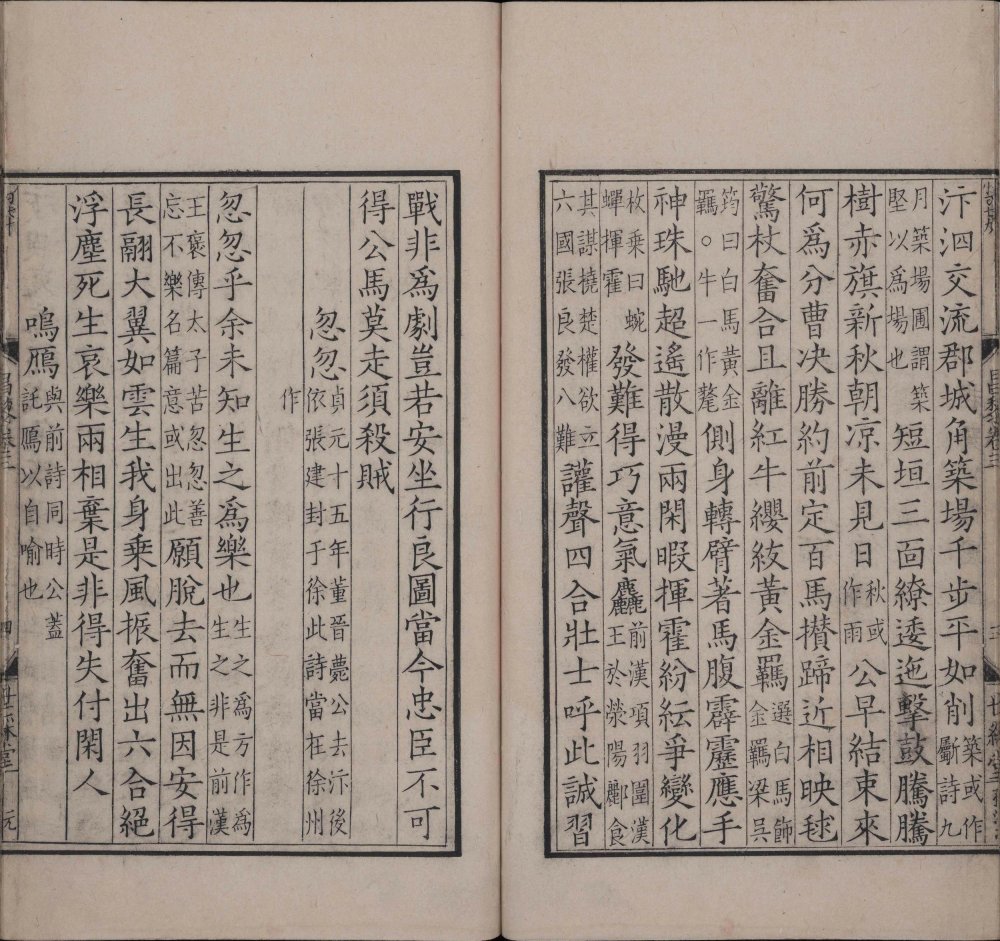 汴泗交流郡城角築場千步平如削築或作斸詩九
月築場圃謂築堅以爲場也短垣三面繚逶迤擊鼓騰騰
樹赤旗新秋朝凉未見日秋或作雨公早結束來
何爲分曹决勝約前定百馬攢蹄近相映毬
驚杖奮合且離紅牛纓紱黃金羈選白馬飾金羈梁吳
筠曰白馬黃金羈○牛一作氂側身轉臂著馬腹霹靂應手
神珠馳超遙散漫兩閑暇揮霍紛紜爭變化
枚乘曰蜿蟬揮霍發難得巧意氣麤前漢項羽圍漢王於滎陽酈食
其謀橈楚權欲立六國張良發八難讙聲四合壯士呼此誠習
戰非爲劇豈若安坐行良圖當今忠臣不可
得公馬莫走須殺賊
忽忽貞元十五年董晉薨公去汴後依張建封于徐此詩當在徐州
作
忽忽乎余未知生之爲樂也生之爲方作爲生之非是前漢
王褒傳太子苦忽忽善忘不樂名篇意或出此願脫去而無因安得
長翮大翼如雲生我身乘風振奮出六合絕
浮塵死生哀樂兩相棄是非得失付閑人
鳴鴈與前詩同時公蓋託鴈以自喻也
昌黎卷三
四